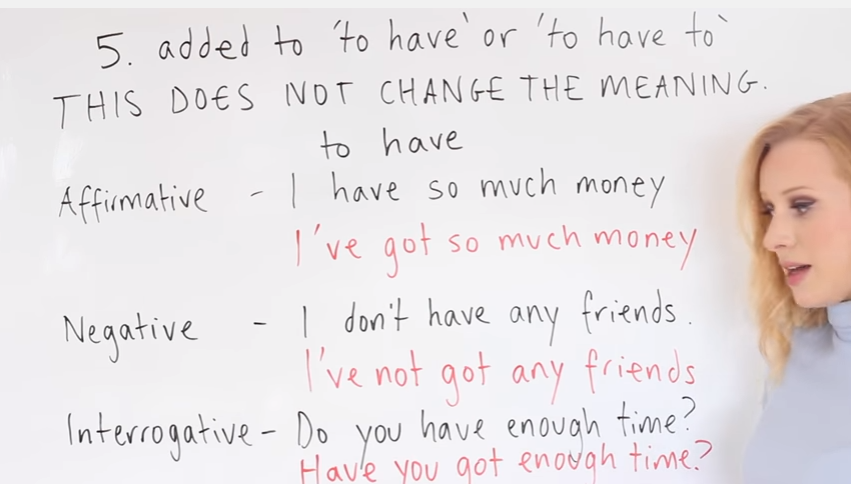 5. added to 'to have' or 'to have to'
THIS DOES NOT CHANGE THE MEANING.
to have
Affirmative - I have so much money
I've got so much money
Negative - I don't have any friends.
I've not got any friends
Interrogative - Do you have enough time?
Have you got enough time?